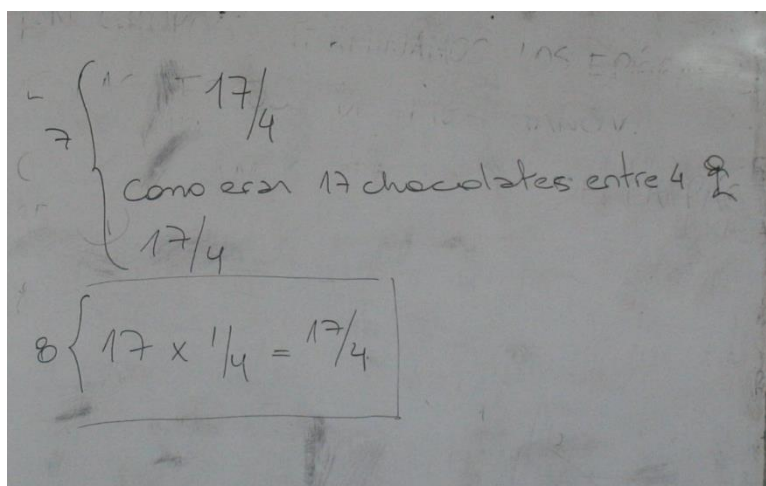 17/4
7
como eran 17 chocolates entre 4
17/4
8 17 x 1/4 = 17/4